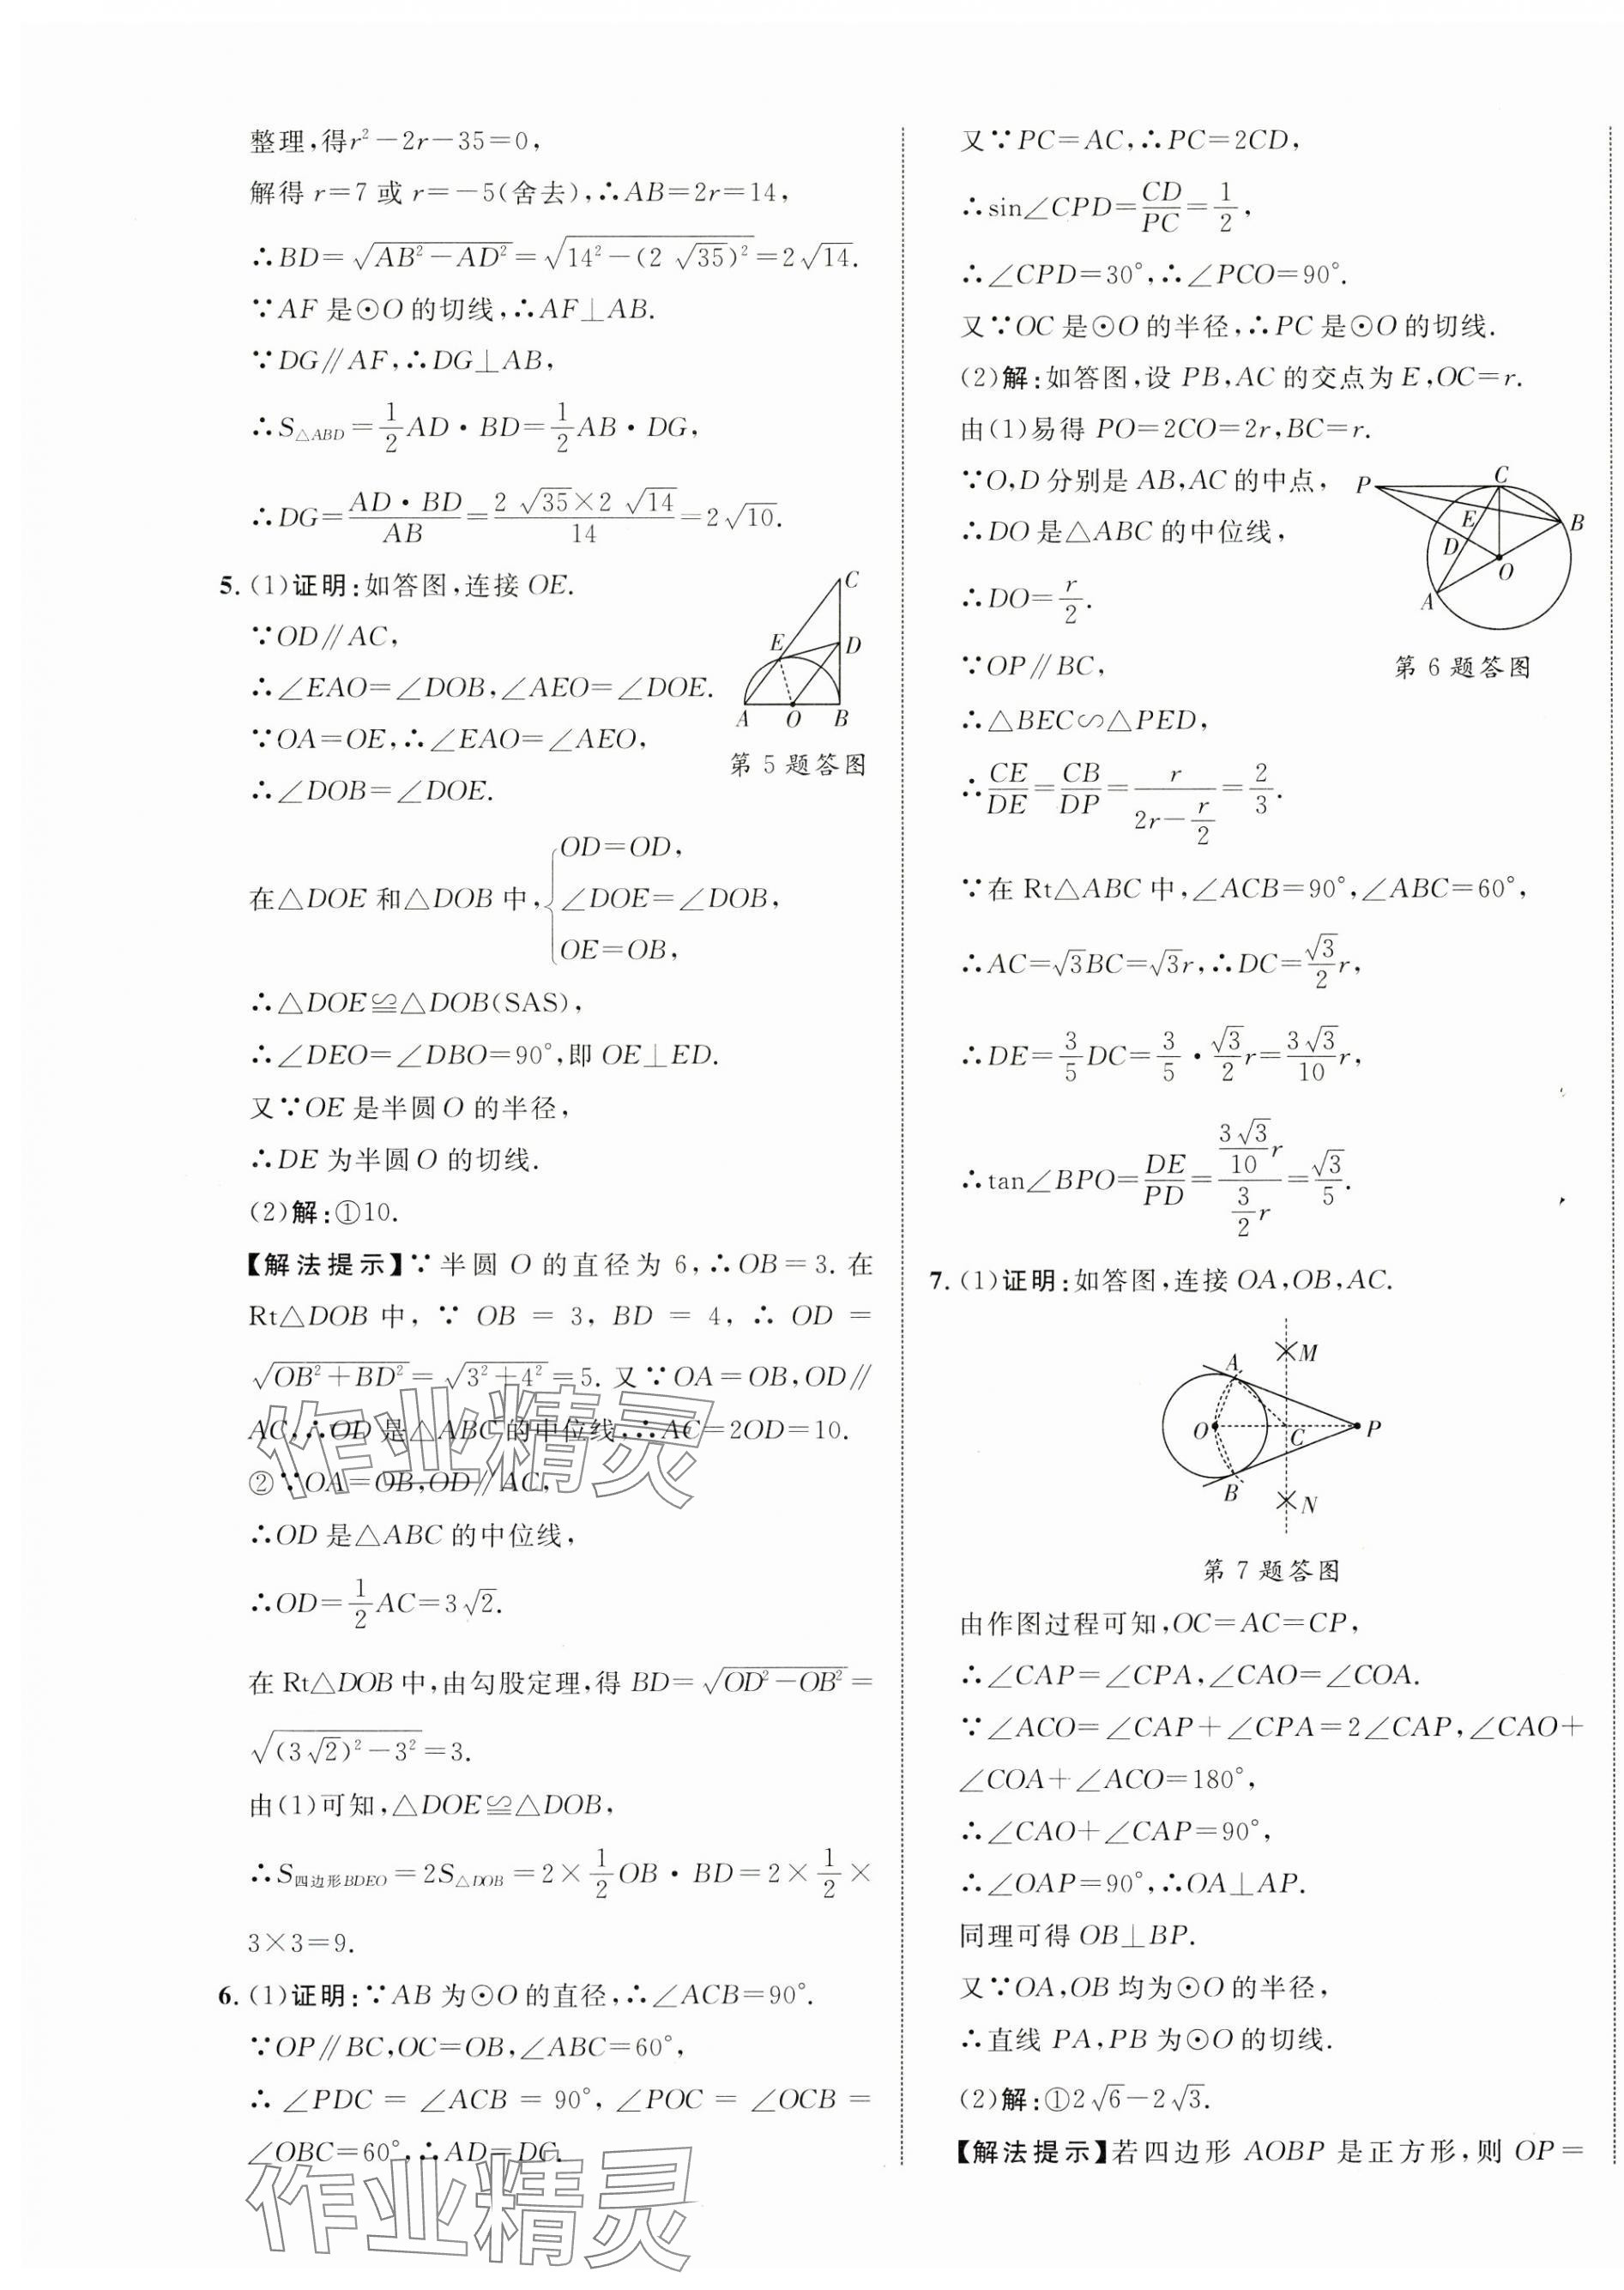 整理,得r²-2r-35=0,
解得 r=7 或 r=-5(舍去),∴AB=2r=14,
∴BD=√(AB²-AD²)=√(14²-(2√35)²)=2√14.
∵AF 是⊙O 的切线,∴AF⊥AB.
∵DG∥AF,∴DG⊥AB,
∴S△ABD=1/2 AD·BD=1/2 AB·DG,
∴DG=AD·BD/AB=2√35×2√14/14=2√10.
5. (1)证明:如答图,连接 OE.
∵OD∥AC,
∴∠EAO=∠DOB,∠AEO=∠DOE.
∵OA=OE,∴∠EAO=∠AEO,
∴∠DOB=∠DOE.
C
E
D
A O B
第 5 题答图
在△DOE 和△DOB 中,{OD=OD,
∠DOE=∠DOB,
OE=OB,
∴△DOE≌△DOB(SAS),
∴∠DEO=∠DBO=90°,即 OE⊥ED.
又∵OE 是半圆 O 的半径,
∴DE 为半圆 O 的切线.
(2)解:①10.
【解法提示】∵半圆 O 的直径为 6,∴OB=3. 在
Rt△DOB 中, ∵ OB = 3, BD = 4, ∴ OD =
√(OB²+BD²)=√(3²+4²)=5. 又∵OA=OB,OD∥
AC,∴OD 是△ABC 的中位线,∴AC=2OD=10.
②∵OA=OB,OD∥AC,
∴OD 是△ABC 的中位线,
∴OD=1/2 AC=3√2.
在 Rt△DOB 中,由勾股定理,得 BD=√(OD²-OB²)=
√((3√2)²-3²)=3.
由(1)可知,△DOE≌△DOB,
∴S四边形BDEO=2S△DOB=2×1/2 OB·BD=2×1/2×
3×3=9.
6. (1)证明:∵AB 为⊙O 的直径,∴∠ACB=90°.
∵OP∥BC,OC=OB,∠ABC=60°,
∴ ∠PDC = ∠ACB = 90°, ∠POC = ∠OCB =
∠OBC=60°,∴AD=DC.
作业精灵
作业精灵
又∵PC=AC,∴PC=2CD,
∴sin∠CPD=CD/PC=1/2,
∴∠CPD=30°,∴∠PCO=90°.
又∵OC 是⊙O 的半径,∴PC 是⊙O 的切线.
(2)解:如答图,设 PB,AC 的交点为 E,OC=r.
由(1)易得 PO=2CO=2r,BC=r.
∵O,D 分别是 AB,AC 的中点,
∴DO 是△ABC 的中位线,
∴DO=r/2.
∵OP∥BC,
P C
E B
D
O
A
第 6 题答图
∴△BEC∽△PED,
∴CE/DE=CB/DP=r/(2r-r/2)=2/3.
∵在 Rt△ABC 中,∠ACB=90°,∠ABC=60°,
∴AC=√3BC=√3r,∴DC=√3/2 r,
∴DE=3/5 DC=3/5·√3/2 r=3√3/10 r,
∴tan∠BPO=DE/PD=(3√3/10 r)/(3/2 r)=√3/5.
7. (1)证明:如答图,连接 OA,OB,AC.
A M
O C P
B N
第 7 题答图
由作图过程可知,OC=AC=CP,
∴∠CAP=∠CPA,∠CAO=∠COA.
∵∠ACO=∠CAP+∠CPA=2∠CAP,∠CAO+
∠COA+∠ACO=180°,
∴∠CAO+∠CAP=90°,
∴∠OAP=90°,∴OA⊥AP.
同理可得 OB⊥BP.
又∵OA,OB 均为⊙O 的半径,
∴直线 PA,PB 为⊙O 的切线.
(2)解:①2√6-2√3.
【解法提示】若四边形 AOBP 是正方形,则 OP=